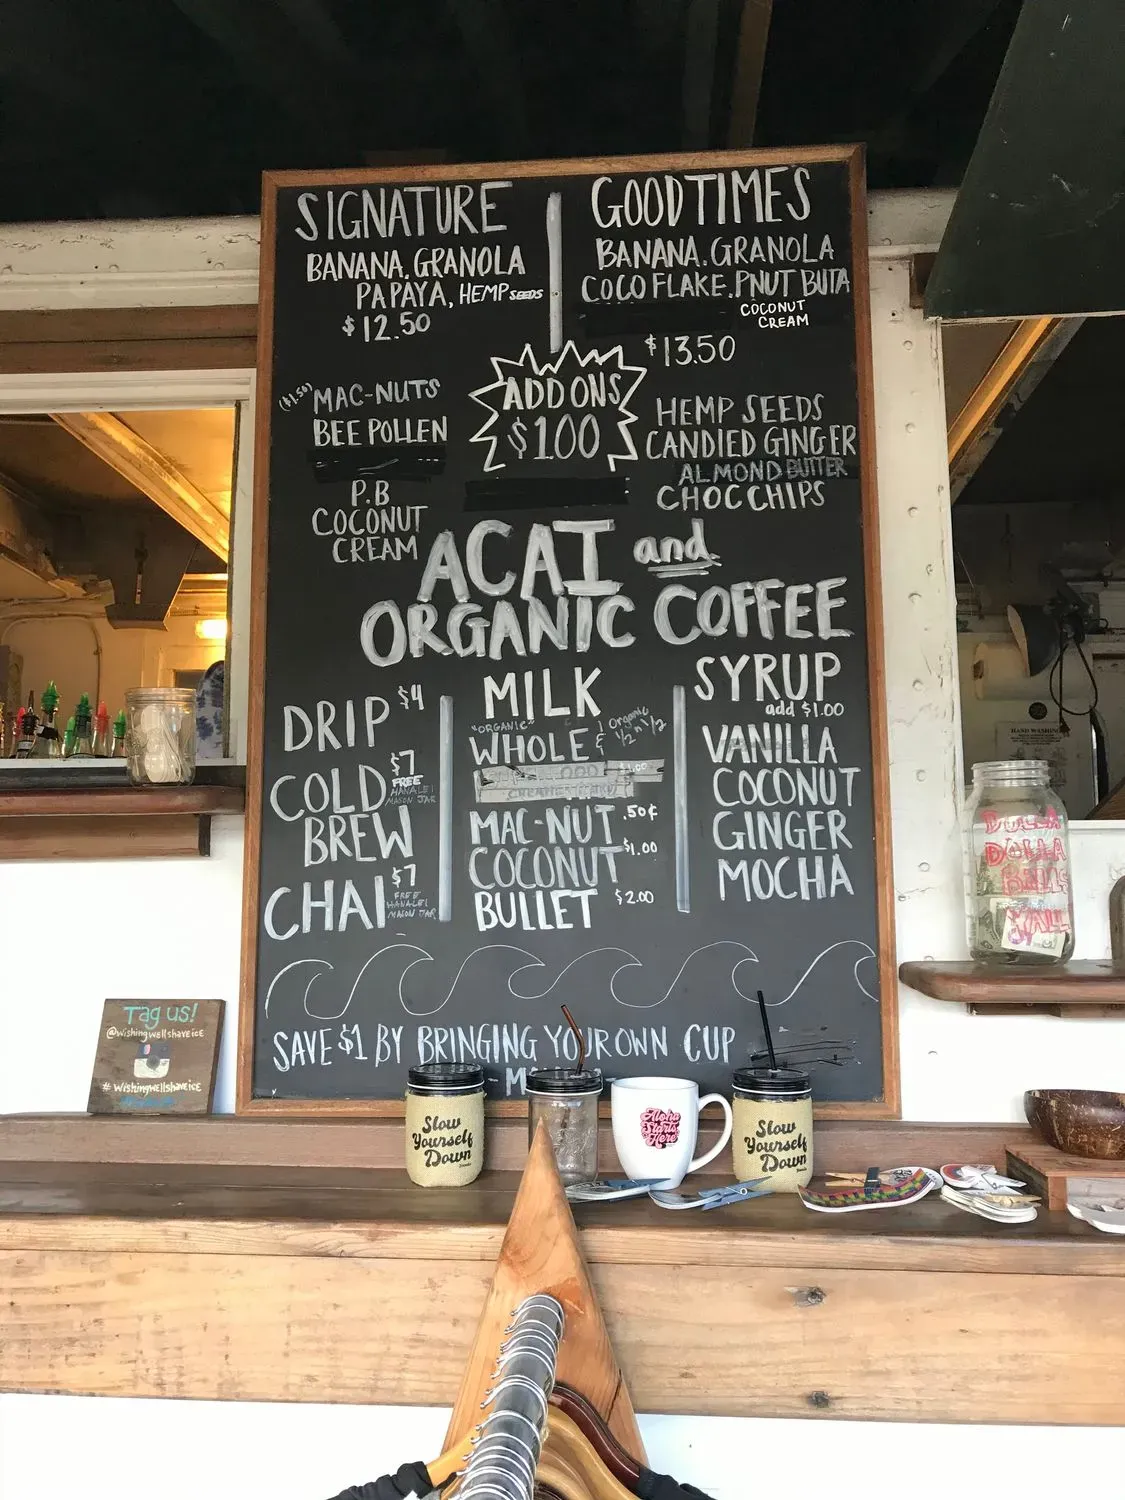 SIGNATURE
BANANA, GRANOLA
PAPAYA, HEMP SEEDS
$12.50
GOODTIMES
BANANA, GRANOLA
COCO FLAKE, PNUT BUTA
COCONUT
CREAM
$13.50
ADD ONS
$1.00
($1.50) MAC-NUTS
BEE POLLEN
P.B
COCONUT
CREAM
HEMP SEEDS
CANDIED GINGER
ALMOND BUTTER
CHOC CHIPS
ACAI and
ORGANIC COFFEE
DRIP $4
COLD
BREW
$7
FREE
HANALEI
MASON JAR
CHAI
$7
FREE
HANALEI
MASON JAR
MILK
"ORGANIC"
WHOLE & Organic
1/2 n 1/2
MAC-NUT .50¢
COCONUT $1.00
BULLET $2.00
SYRUP
add $1.00
VANILLA
COCONUT
GINGER
MOCHA
SAVE $1 BY BRINGING YOUR OWN CUP
Tag us!
@wishingwellshaveice
#wishingwellshaveice
Slow
Yourself
Down
Aloha
Starts
Here
Slow
Yourself
Down
HAND WASHING
DOLLA
DOLLA
BILLS
Y'ALL